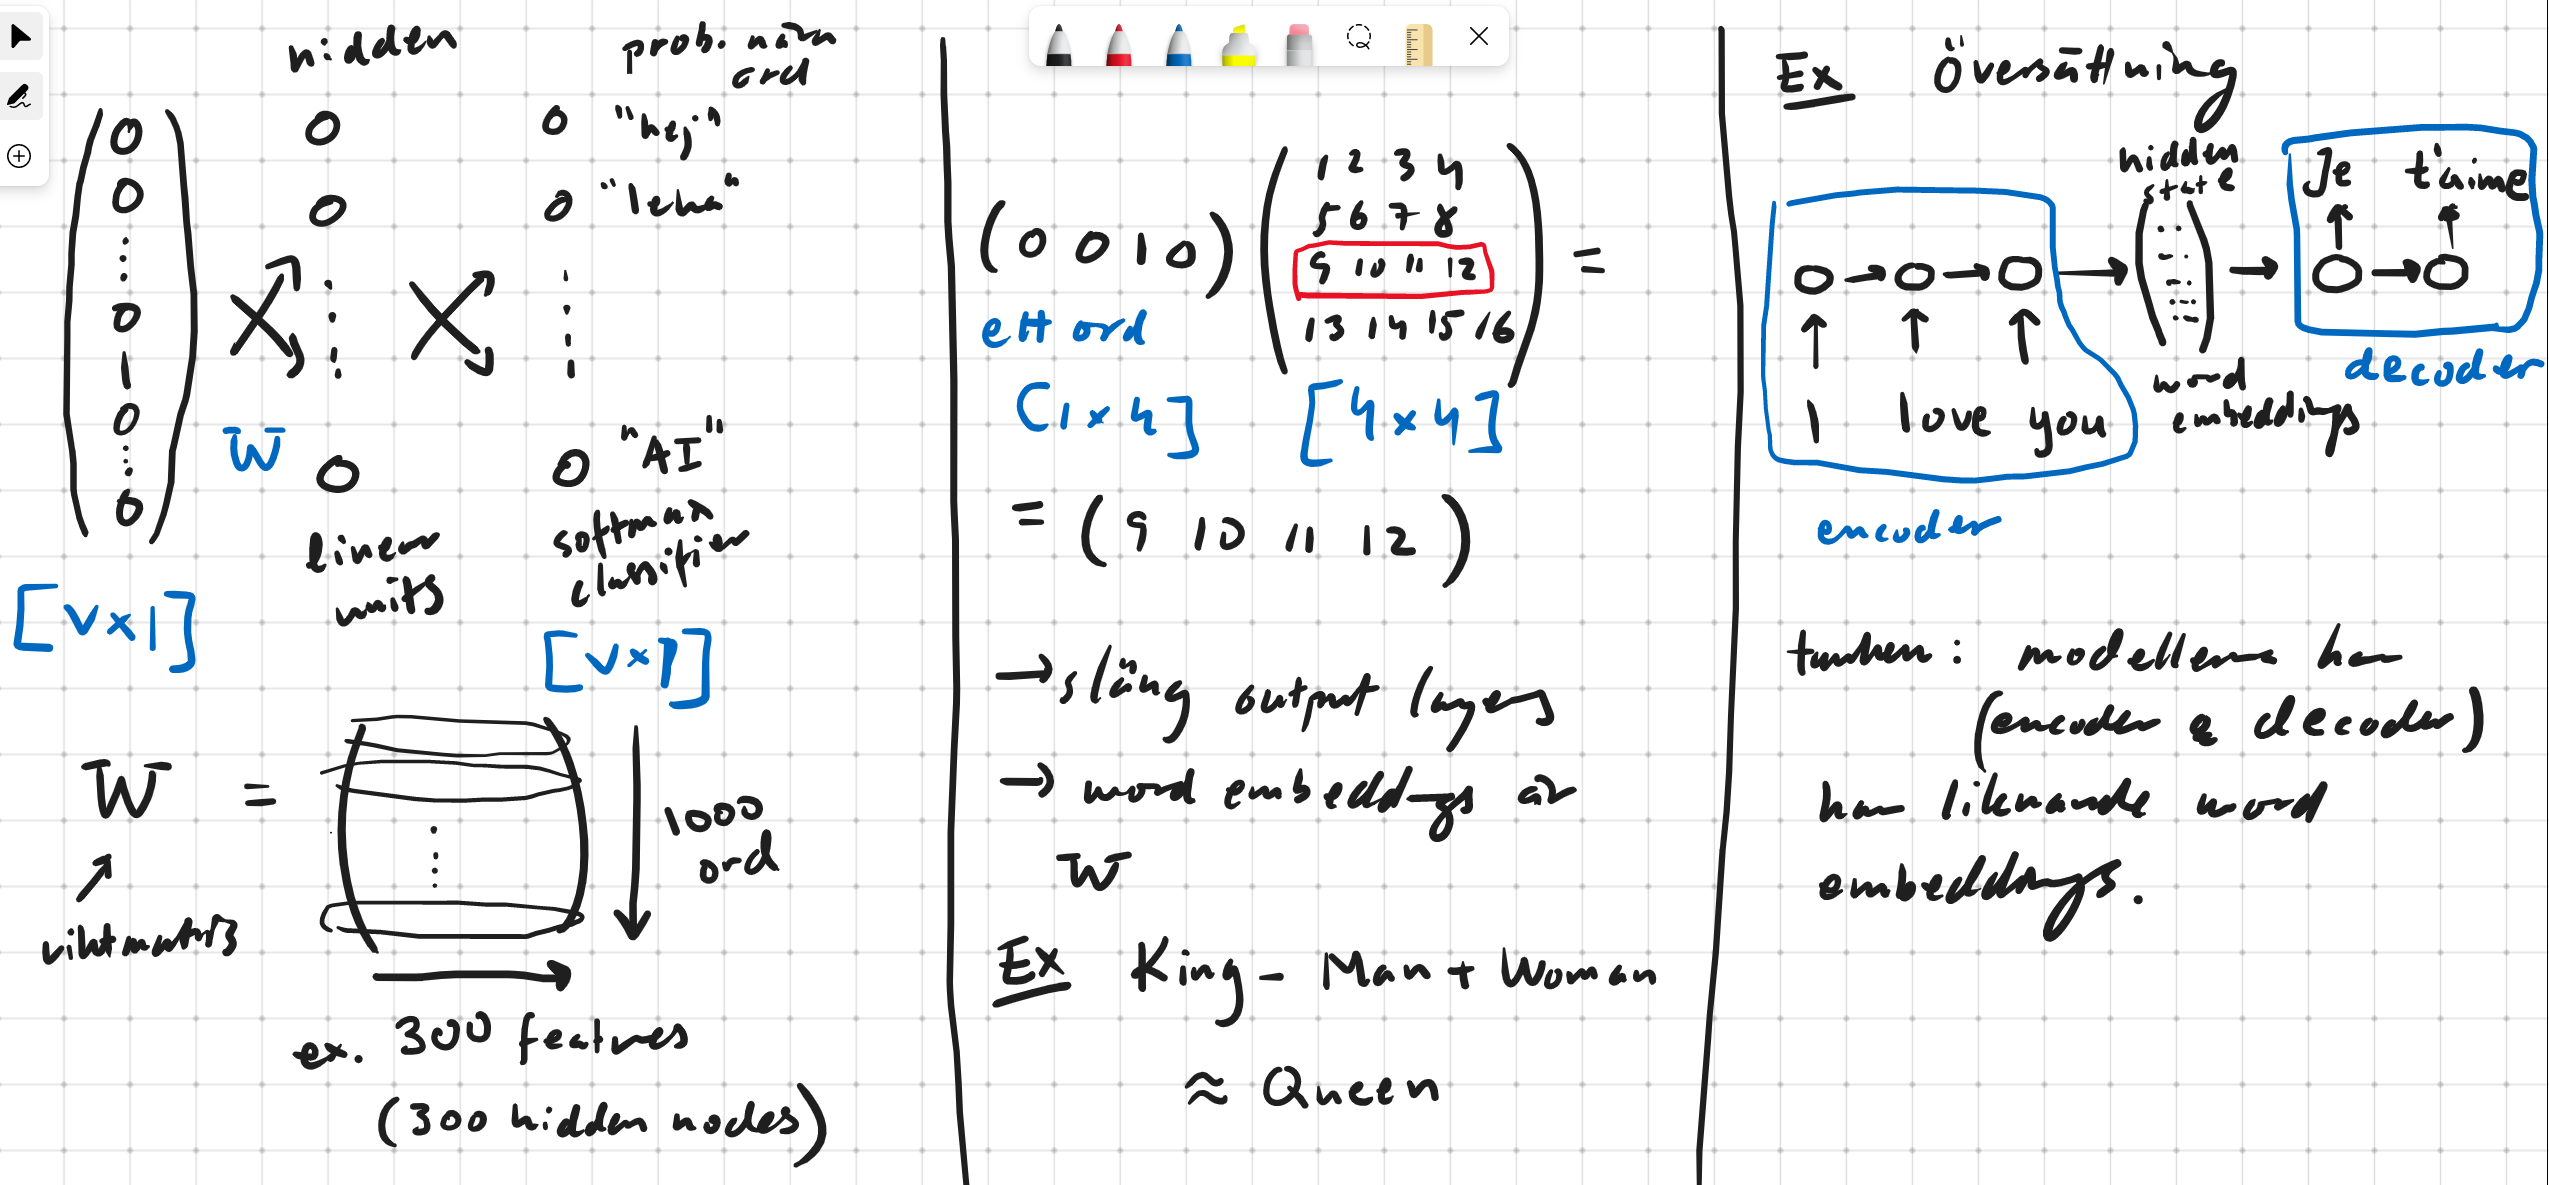 hidden
prob. nära
ord
0
0
0
1
0
0
"hej"
"leha"
"AI"
W
linear
units
softmax
classifier
[V×1]
[V×1]
W =
viktmatris
1000
ord
ex. 300 features
(300 hidden nodes)
(0 0 1 0)
1 2 3 4
5 6 7 8
9 10 11 12
13 14 15 16
=
ett ord
[1×4] [4×4]
= (9 10 11 12)
→ släng output layers
→ word embeddings är
W
Ex King - Man + Woman
≈ Queen
Ex Översättning
hidden
state
Je t'aime
I love you
word
embeddings
encoder
decoder
tanken: modellerna har
(encoder & decoder)
har liknande word
embeddings.